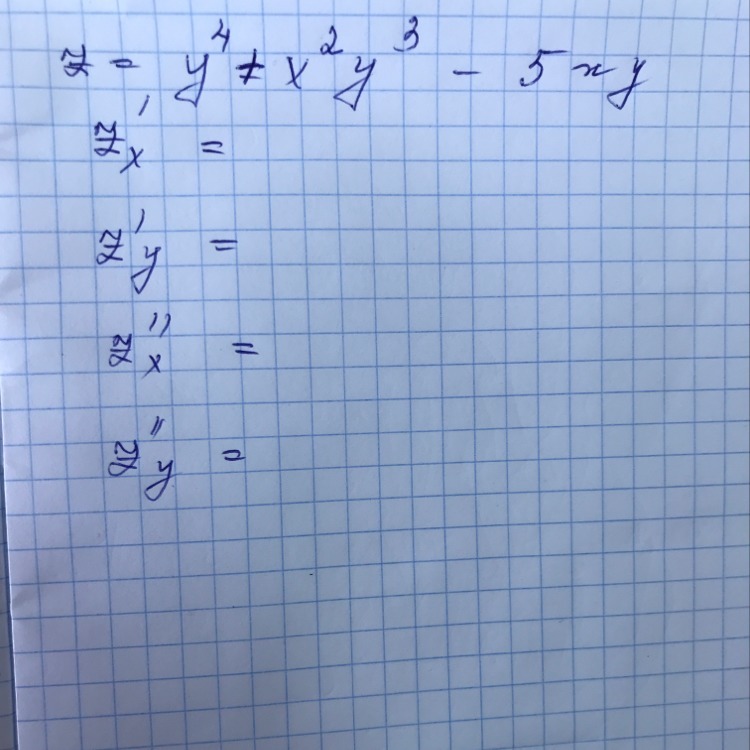 z = y⁴ + x²y³ - 5xy
z'ₓ =
z'_y =
z''ₓ =
z''_y =